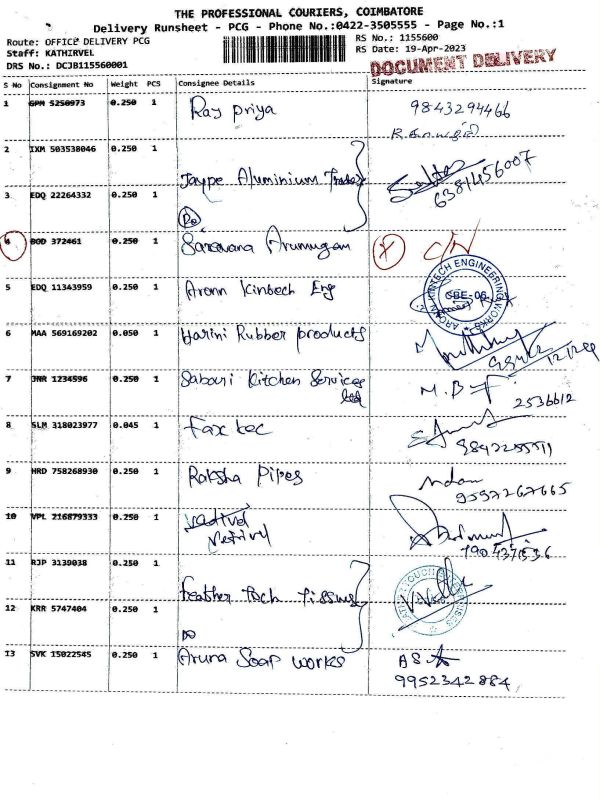 THE PROFESSIONAL COURIERS, COIMBATORE
Delivery Runsheet - PCG - Phone No.:0422-3505555 - Page No.:1
Route: OFFICE DELIVERY PCG
RS No.: 1155600
Staff: KATHIRVEL
RS Date: 19-Apr-2023
DRS No.: DCJB115560001
DOCUMENT DELIVERY
S No Consignment No Weight PCS Consignee Details Signature
1 GPM 5250973 0.250 1 Raj priya 9843294466
2 IXM 503538046 0.250 1
Jaype Aluminium Traders 6381456007
3 EDQ 22264332 0.250 1
Do
4 BOD 372461 0.250 1 Saravana Arumugam X C/N
5 EDQ 11343959 0.250 1 Aronn Kintech Eng
KINTECH ENGINEERING WORKS
CBE-06
6 MAA 569169202 0.050 1 Harini Rubber products
7 JNR 1234596 0.250 1 Sabari Kitchen Services M.B
ltd 2536612
8 SLM 318023977 0.045 1 Fax tec
9 HRD 758268930 0.250 1 Raksha Pipes
9597267665
10 VPL 216879333 0.250 1 Vadivel
Vetrivel
11 RJP 3139038 0.250 1
Feather Toch Tissues
12 KRR 5747404 0.250 1
Do
13 SVK 15022545 0.250 1 Aruna Soap works
9952342884